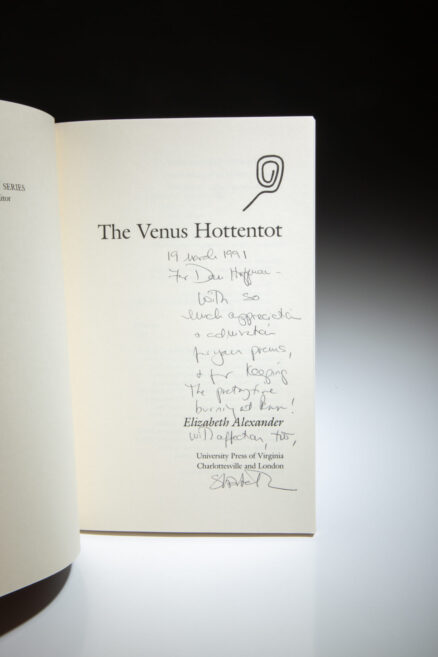 SERIES
The Venus Hottentot
19 March 1991
For Dan Hoffman –
With so
much appreciation
& admiration
for your poems,
& for keeping
the poetry fire
burning at Penn!
Elizabeth Alexander
with affection, too,
University Press of Virginia
Charlottesville and London